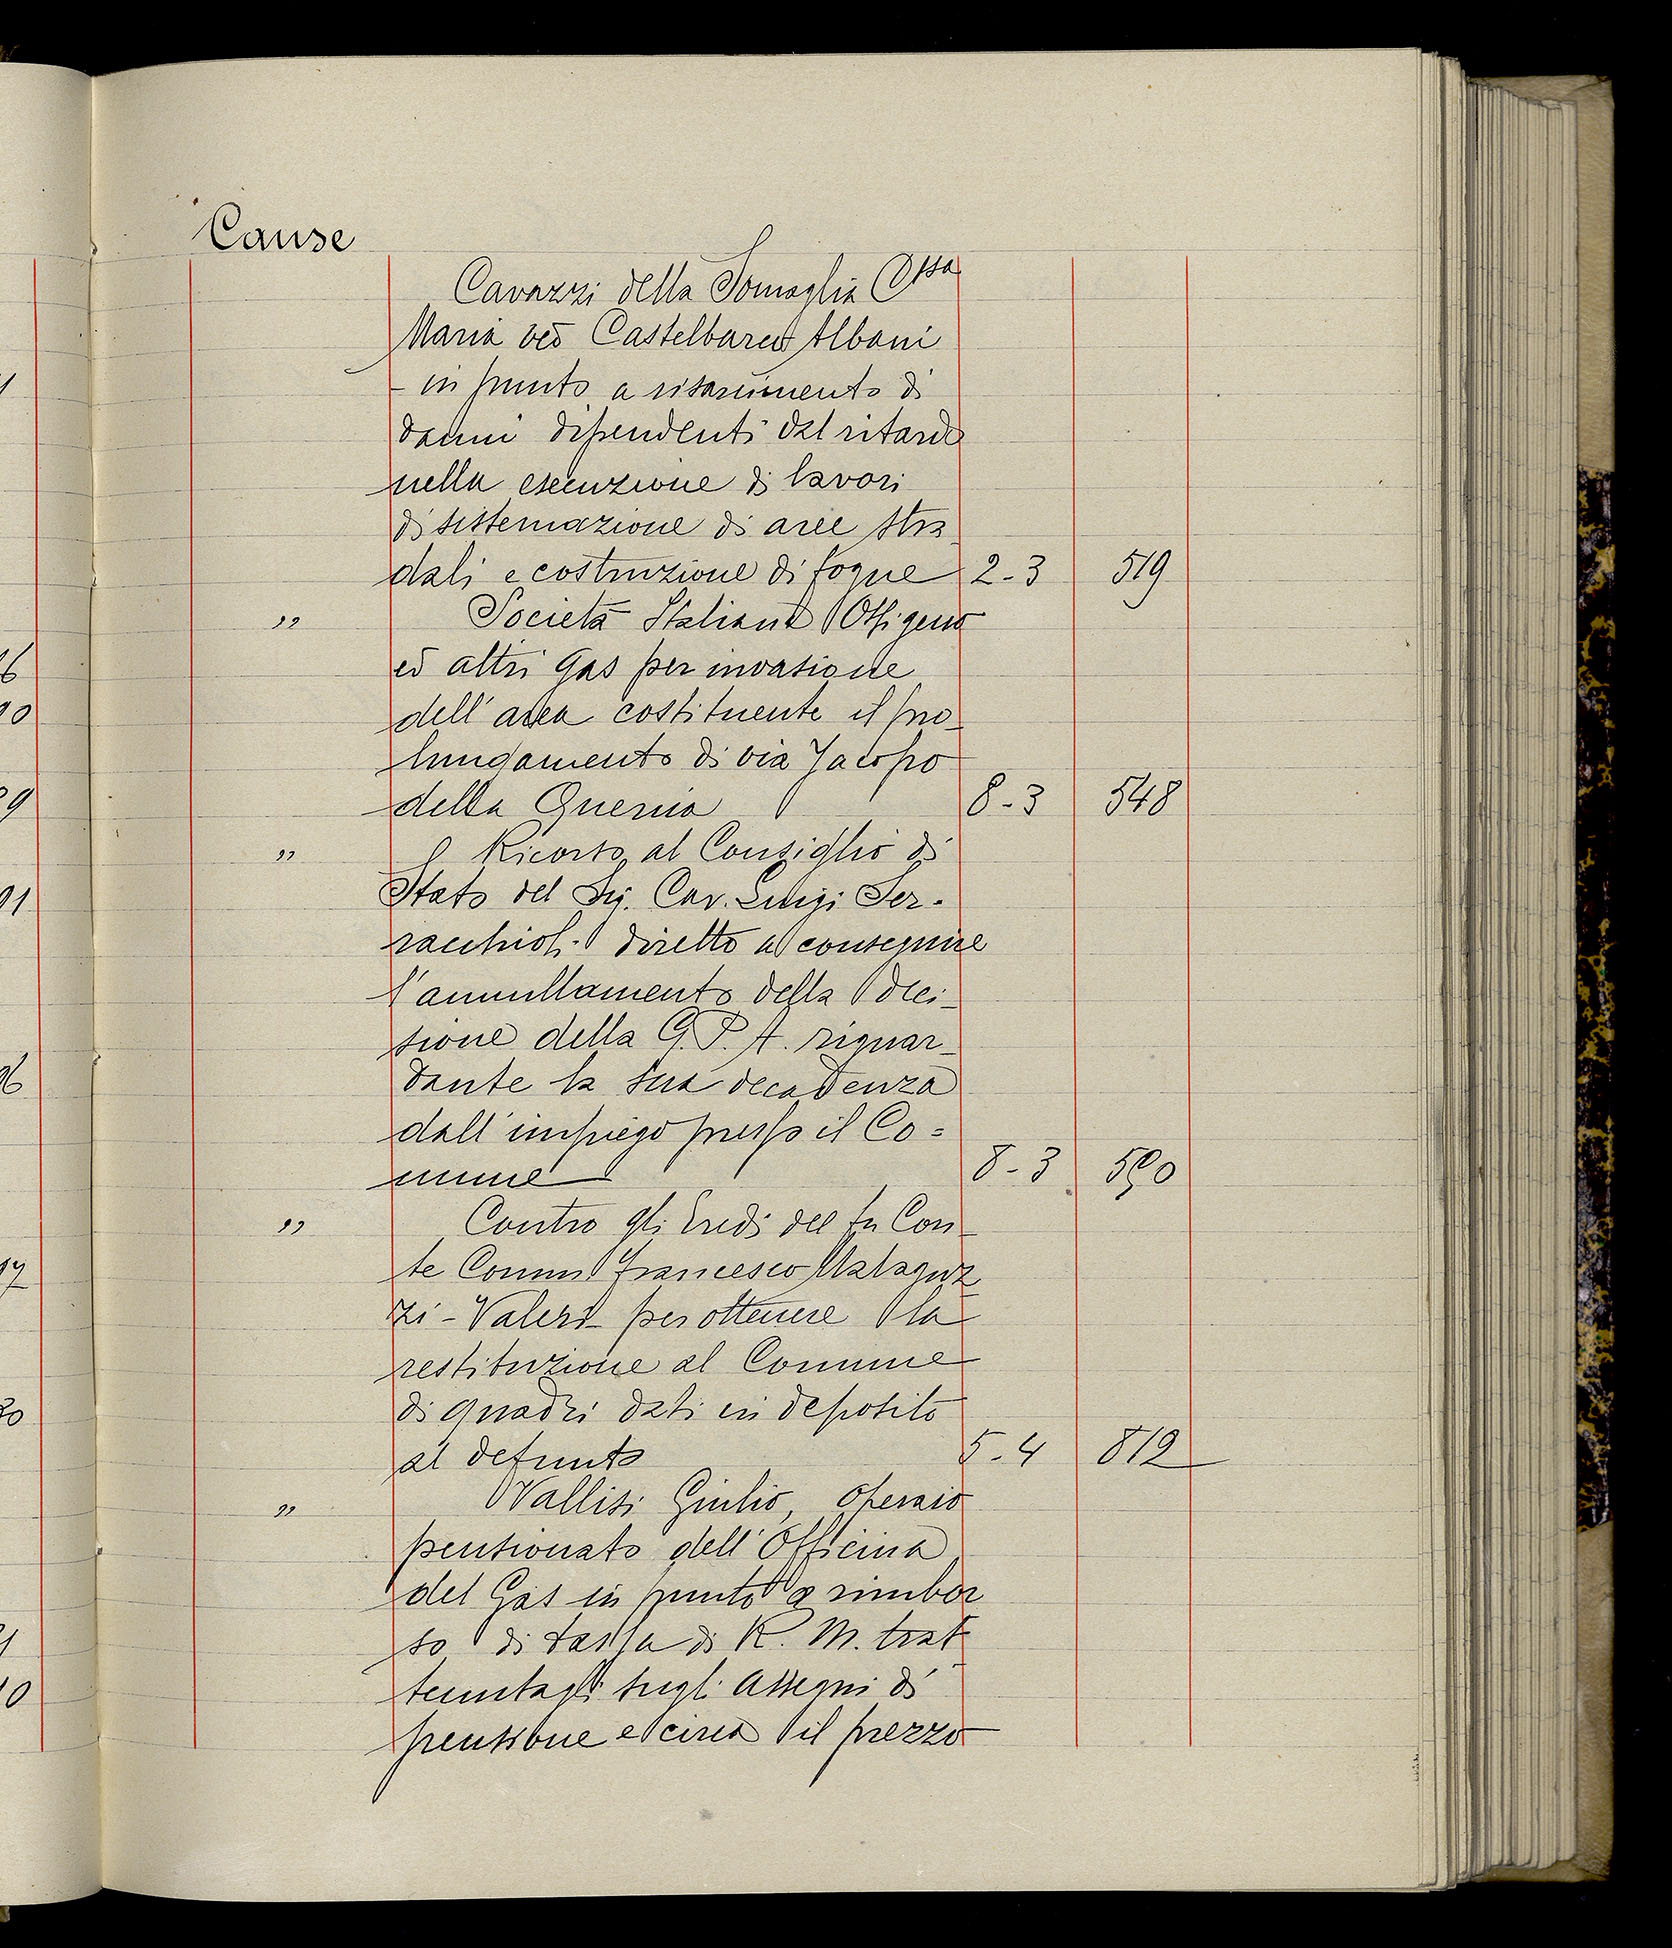 Cause
Cavazzi della Somaglia C.ssa
Maria ved Castelbarco Albani
- in punto a risarcimento di
danni dipendenti dal ritardo
nella esecuzione di lavori
di sistemazione di aree stra
dali e costruzione di fogne 2-3 519
" Società Italiana Ossigeno
ed altri Gas per invasione
dell'area costituente il pro-
lungamento di via Jacopo
della Quercia 8-3 548
" Ricorso al Consiglio di
Stato del Sig. Cav. Luigi Ser-
racchioli diretto a conseguire
l'annullamento della deci-
sione della G.P.A. riguar-
dante la sua decadenza
dall'impiego presso il Co=
mune 8-3
" Contro gli Eredi del fu Con-
te Comm Francesco Malaguz
zi-Valeri per ottenere la
restituzione al Comune
di quadri dati in deposito
al defunto 5-4 812
" Vallisi Giulio, operaio
pensionato dell'Officina
del Gas in punto a rimbor
so di tassa di R. M. trat
tenutagli sugli assegni di
pensione e circa il prezzo
6
90
9
91
96
17
0
1
10